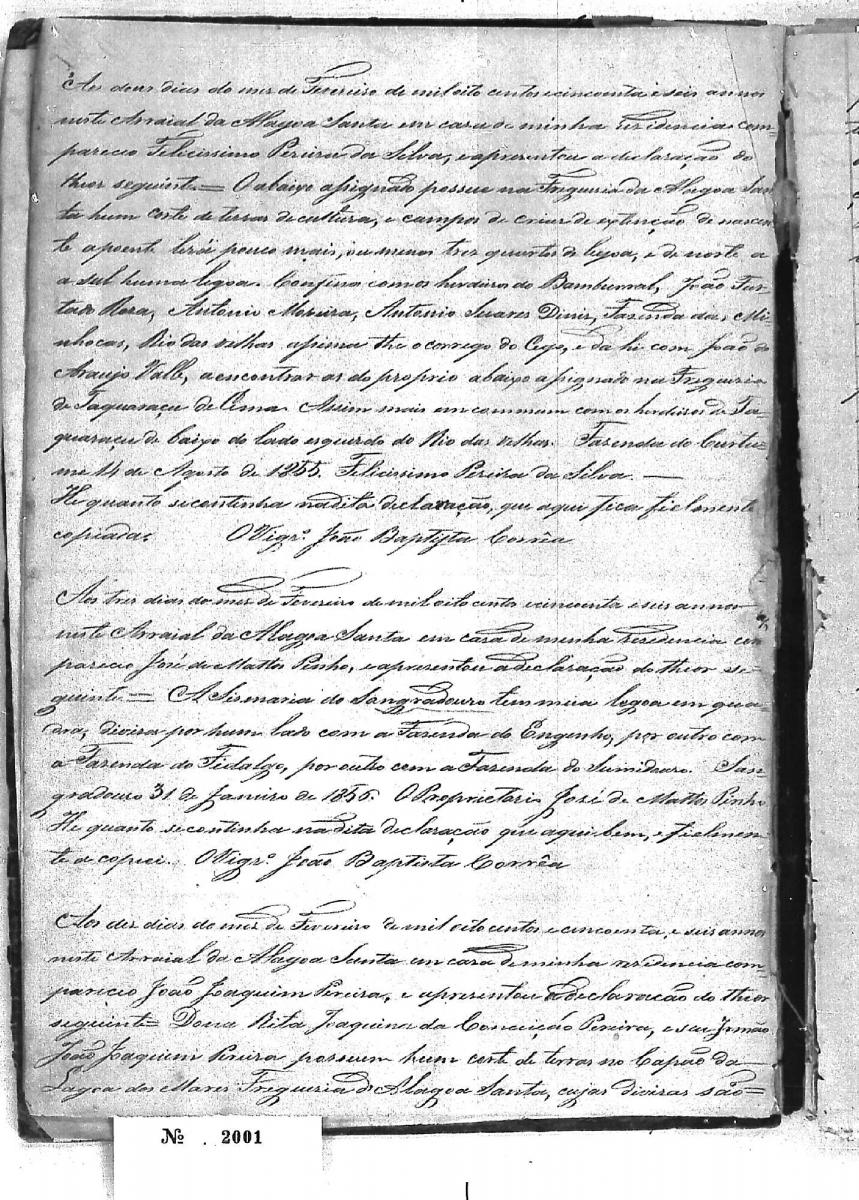 Aos dous dias do mez de Fevereiro de mil oito centos e cincoenta e seis annos
neste Arraial da Alagoa Santa em casa de minha residencia com-
pareceo Felicissimo Pereira da Silva, e apresentou a declaração do
theor seguinte = O abaixo assignado possue na Freguesia da Alagoa San-
ta hum corte de terras de cultura, e campos de criar de extenção de nascen-
te a poente terá pouco mais, ou menos tres quartos de legoa, e de norte a
a sul huma legoa. Confina com os herdeiros do Bamburral, João Fur-
tado Rosa, Antonio Moreira, Antonio Suares Diniz, Fazenda das Mi-
nhocas, Rio das velhas assima the o corrego do Cego, e da hi com João de
Araujo Valle, a encontrar os do proprio abaixo assignado na Freguesia
de Taquaraçu de Cima. Assim mais em commum com os herdeiros de Ta-
quaraçu de Caixo do lado esquerdo do Rio das velhas. Fazenda do Curtu-
me 14 de Agosto de 1855. Felicissimo Pereira da Silva. —
He quanto se continha na dita declaração, que aqui fica fielmente
copiada. O Vigrº João Baptista Corrêa
Aos tres dias do mez de Fevereiro de mil oito centos e cincoenta e seis annos
neste Arraial da Alagoa Santa em casa de minha residencia com
pareceo José de Mattos Pinho, e apresentou a declaração do theor se-
guinte = A Sismaria do Sangradouro tem meia legoa em qua-
dra, divisa por hum lado com a Fazenda do Engenho, por outro com
a Fazenda do Fidalgo, por outro com a Fazenda do Sumidouro. San-
gradouro 31 de Janeiro de 1856. O Proprietario José de Mattos Pinho
He quanto se continha na dita declaração que aqui bem, e fielmen-
te a copiei. O Vigrº João Baptista Corrêa
Aos dez dias do mez de Fevereiro de mil oito centos e cincoenta, e seis annos
neste Arraial da Alagoa Santa em casa de minha residencia com-
pareceo João Joaquim Pereira, e apresentou a declaração do theor
seguinte = Dona Rita Joaquina da Conceição Pereira, e seu Irmão
João Joaquim Pereira possuem hum corte de terras no Capão da
Lagoa dos Mares Freguesia d'Alagoa Santa, cujas divisas são =
Nº . 2001